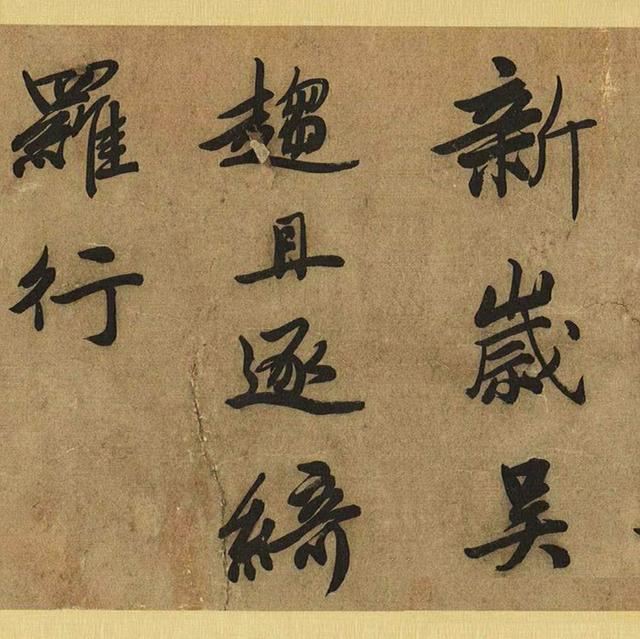 新歲吳
趨且逐綺
羅行